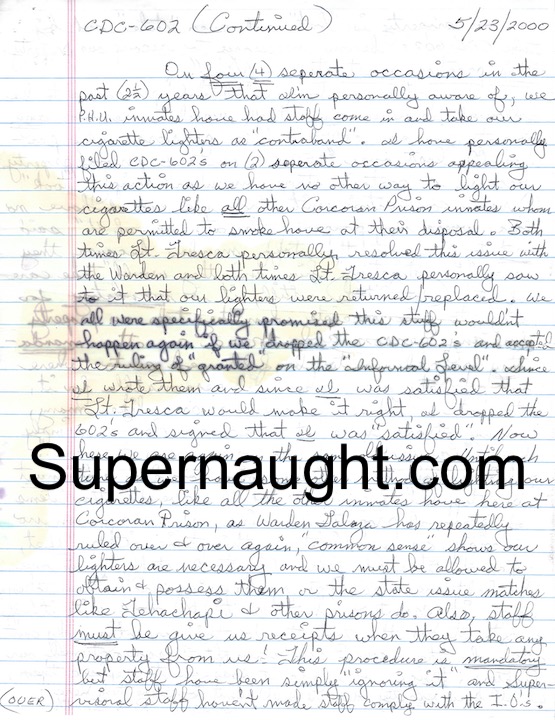 CDC-602 (Continued) 5/23/2000
On four (4) seperate occasions in the
past (2½) years that I'm personally aware of, we
P.H.U. inmates have had staff come in and take our
cigarette lighters as "contraband". I have personally
filed CDC-602s on (2) seperate occasions appealing
this action as we have no other way to light our
cigarettes like all other Corcoran Prison inmates whom
are permitted to smoke have at their disposal. Both
times Lt. Fresca personally resolved this issue with
the Warden and both times Lt. Fresca personally saw
to it that our lighters were returned/replaced. We
all were specifically promised this stuff wouldn't
happen again if we dropped the CDC-602s and accepted
the ruling of "granted" on the "Informal Level". Since
I wrote them and since I was satisfied that
Lt. Fresca would make it right, I dropped the
602s and signed that I was "satisfied". Now
here we are again
Supernaught.com
lighting our
cigarettes, like all the other inmates have here at
Corcoran Prison, as Warden Galaza has repeatedly
ruled over & over again, "common sense" shows our
lighters are necessary and we must be allowed to
obtain & possess them, or the state issue matches
like Tehachapi & other prisons do. Also, staff
must be give us receipts when they take any
property from us! This procedure is mandatory
but staff have been simply "ignoring it" and Super-
visoral staff haven't made staff comply with the I.O.s.
(OVER)